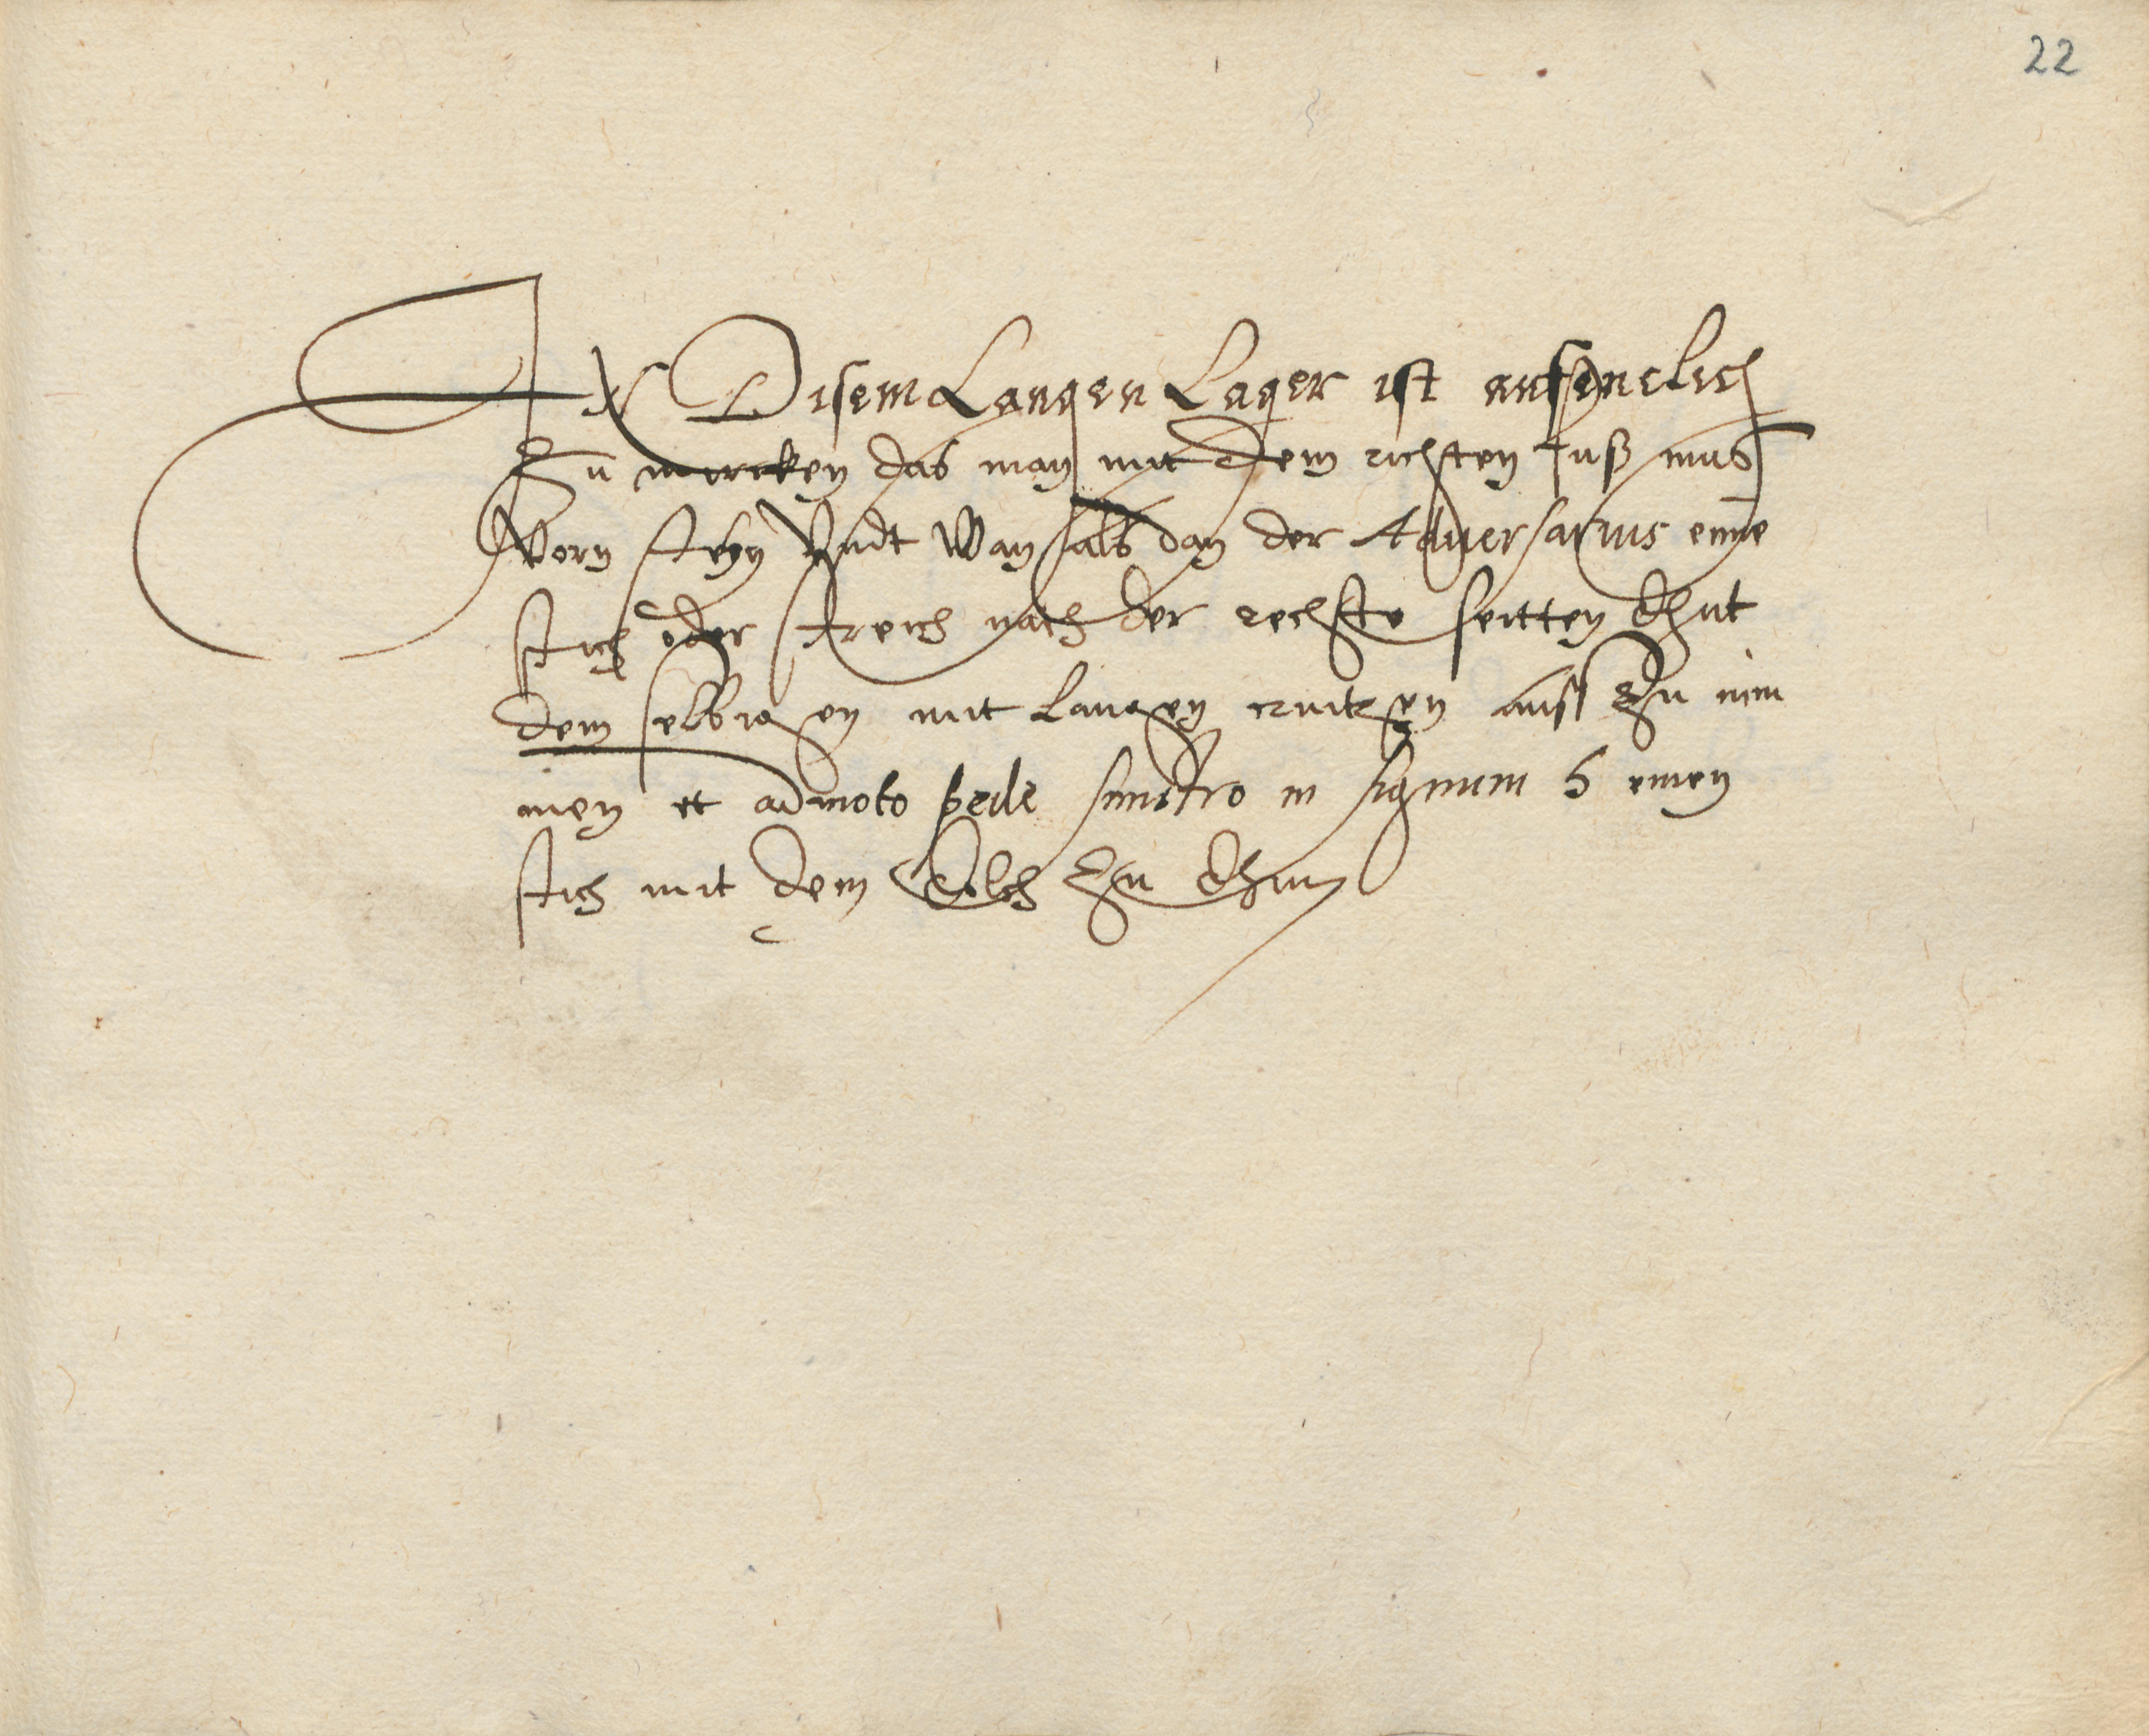 22
In Disem Langen Lager ist anfenclich
Zu mercken das man mit dem richten fuß mus
Vorn stehn Vndt Wan als dan der Aduersarius eine
stich oder streich nach der rechste seitten thut
dem selbigen mit langen creutzen auss Zu nim
men et admoto pede sinistro in signum h einen
stich mit dem Dolch Zu thun